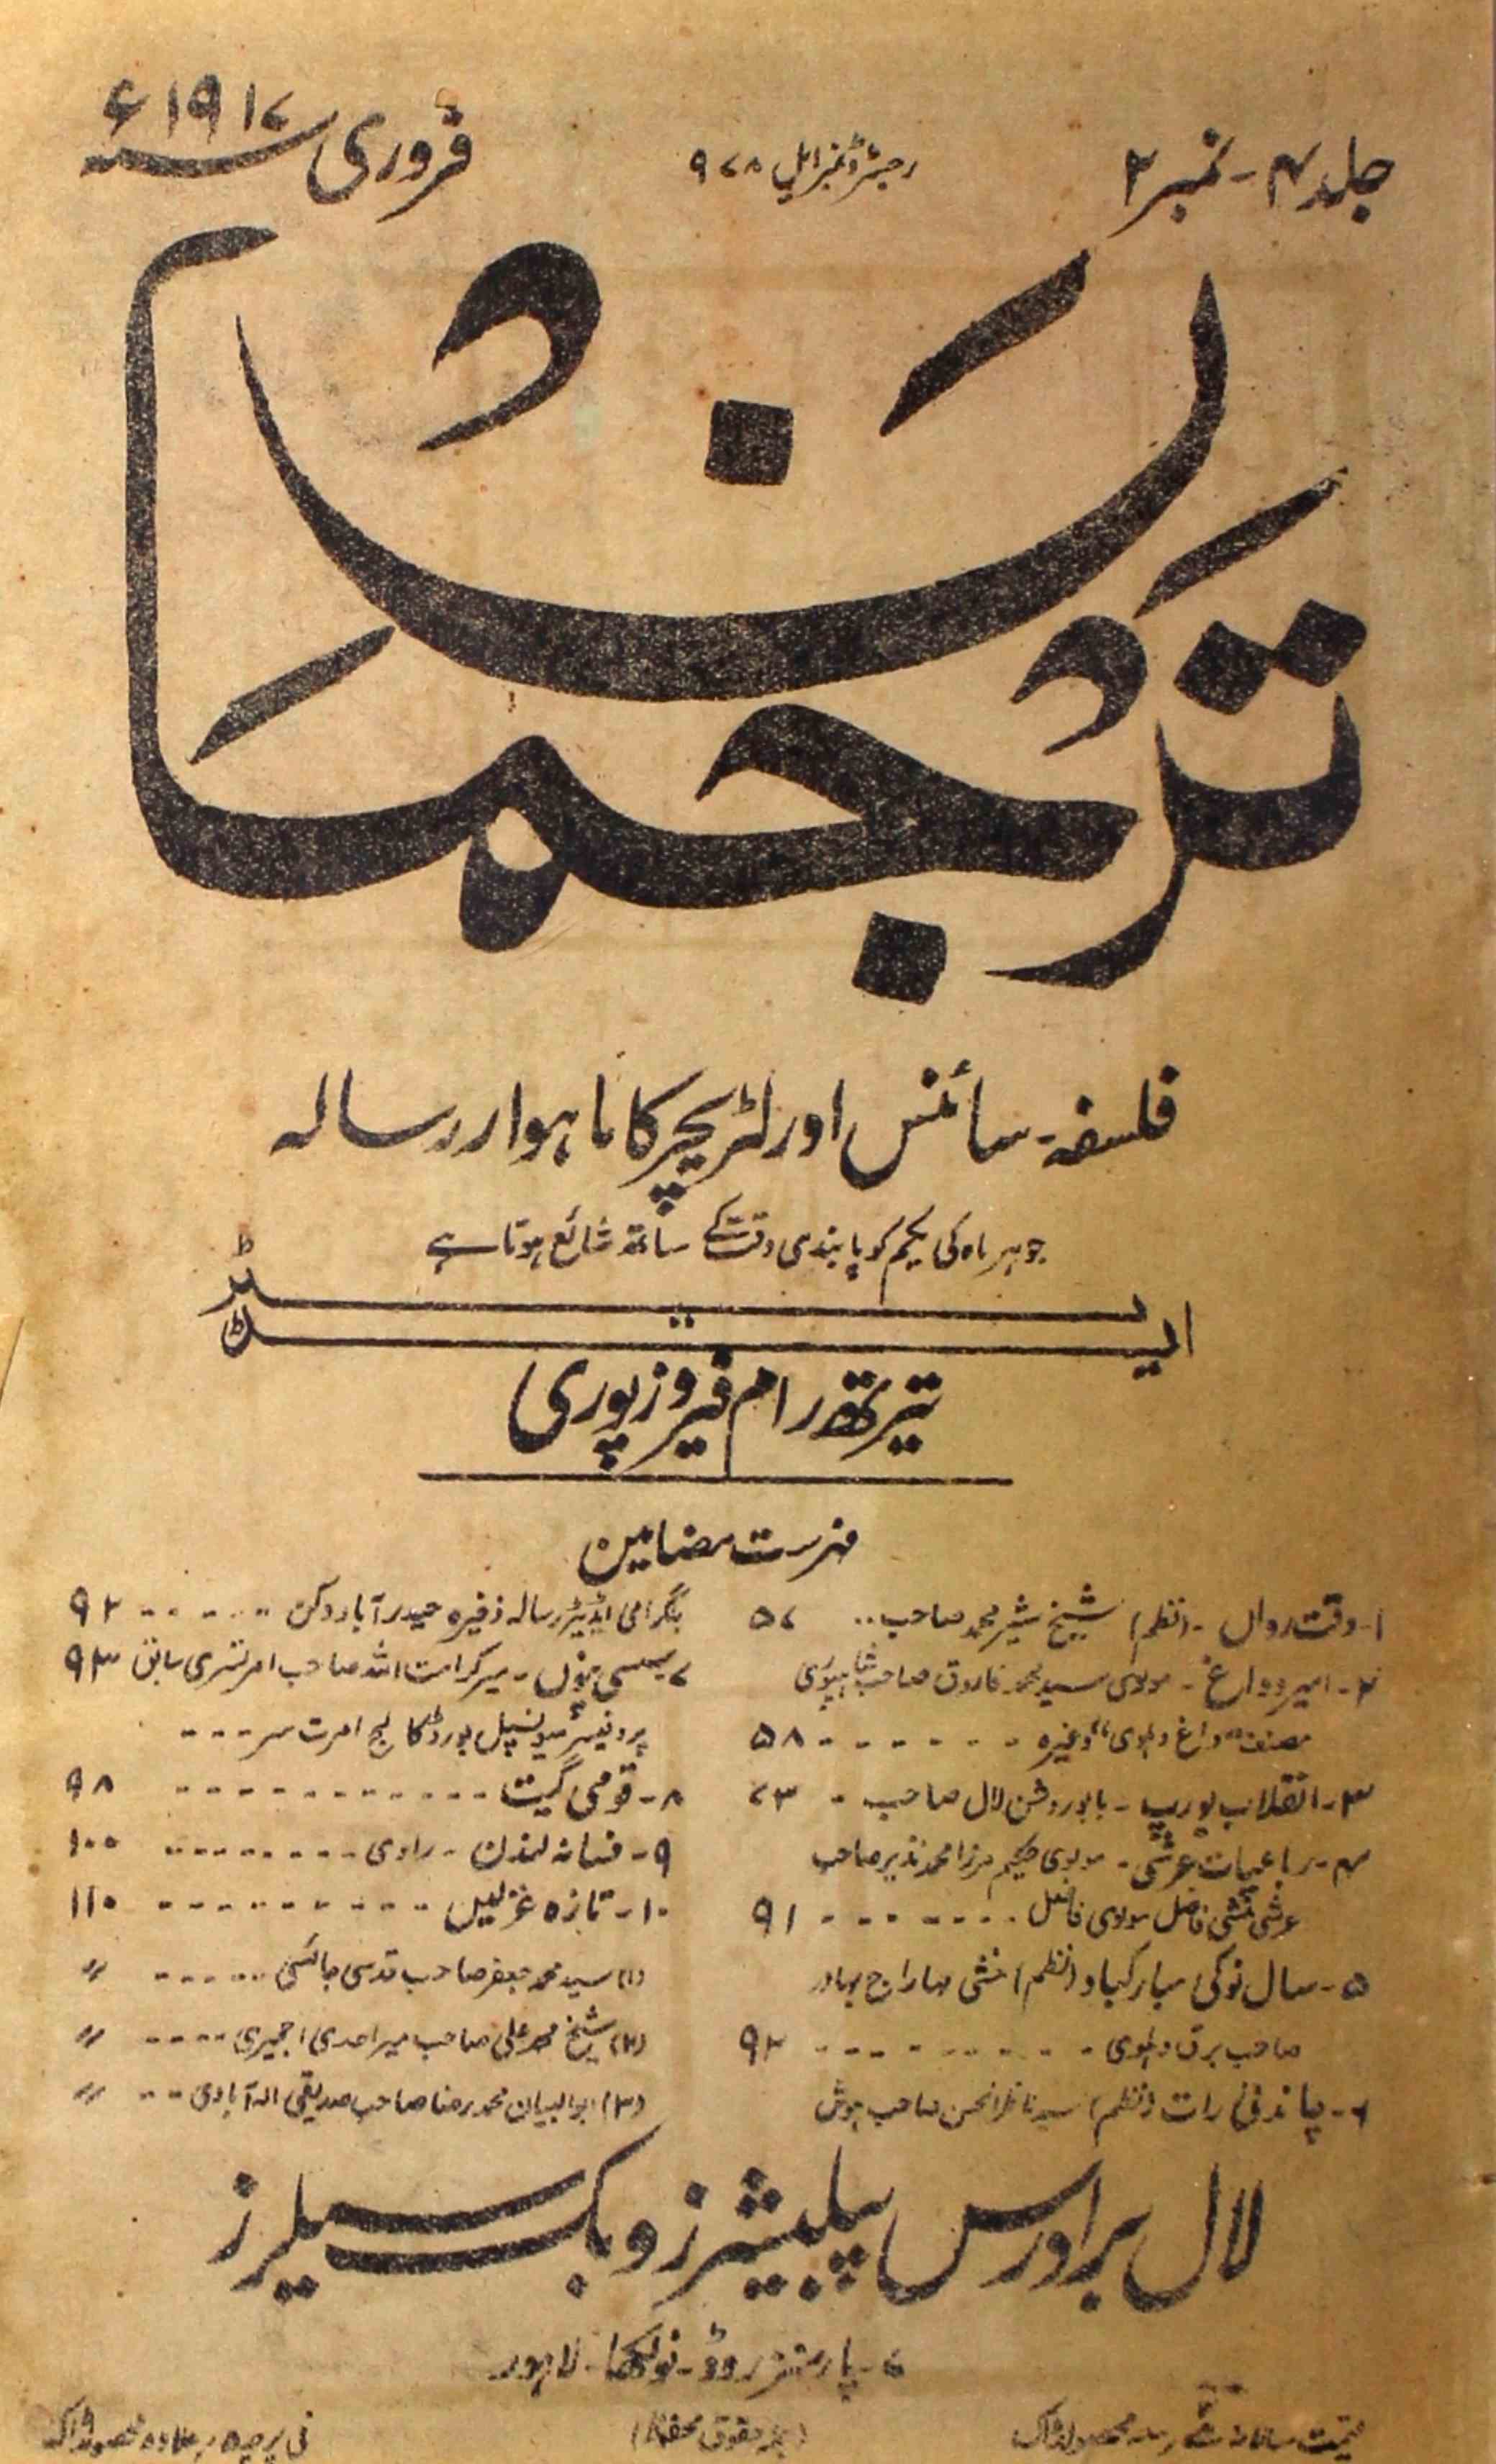 جلد ۴ - نمبر ۲
رجسٹرڈ نمبر ایل ۹۷۸
فروری ۱۹۱۷ء
ترجمان
فلسفہ - سائنس اور لٹریچر کا ماہوار رسالہ
جو ہر ماہ کی یکم کو پابندی وقت کے ساتھ شائع ہوتا ہے
ایڈیٹر
تیرتھ رام فیروزپوری
فہرست مضامین
۱- وقت روال - (نظم) شیخ بشیر محمد صاحب .. ۵۷
۲- امیر و داغ - مولوی سید محمد فاروق صاحب شاہپوری
مصنف "داغ دہلوی" وغیرہ - - - - - - - ۵۸
۳- انقلاب یورپ - بابو روشن لال صاحب - ۷۳
۴- رباعیات عرشی - مولوی حکیم مرزا محمد نذیر صاحب
عرشی منشی فاضل مولوی فاضل - - - - - - - - ۹۱
۵- سال نو کی مبارکباد (نظم) منشی مہاراج بہادر
صاحب برق دہلوی - - - - - - - - - ۹۲
۶- چاندنی رات (نظم) سید ناظر الحسن صاحب ہوش
بلگرامی ایڈیٹر رسالہ ذخیرہ حیدرآباد دکن - - - - - - ۹۲
۷- - میر کرامت اللہ صاحب امرتسری سابق ۹۳
پروفیسر میونسپل بورڈ کالج امرت سر - - - -
۸- قومی گیت - - - - - - - - - - - ۹۸
۹- فسانہ لندن - راوی - - - - - - - - - ۱۰۰
۱۰- تازہ غزلیں - - - - - - - - - - ۱۱۰
(۱) سید محمد جعفر صاحب قدسی جائسی - - - - - - - 〃
(۲) شیخ محمد علی صاحب میر احدی اجمیری - - - - - 〃
(۳) ابوالبیان محمد رضا صاحب صدیقی الہ آبادی - - - 〃
لال برادرس پبلیشرز و بک سیلرز
۷- پارسنز روڈ - نولکھا - لاہور
قیمت سالانہ معہ محصولڈاک
(جملہ حقوق محفوظ)
فی پرچہ علاوہ محصولڈاک